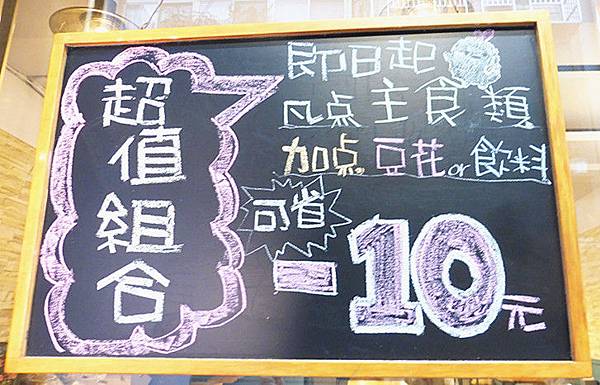 超值組合
即日起
凡点主食類
加点豆花or飲料
可省
-10元